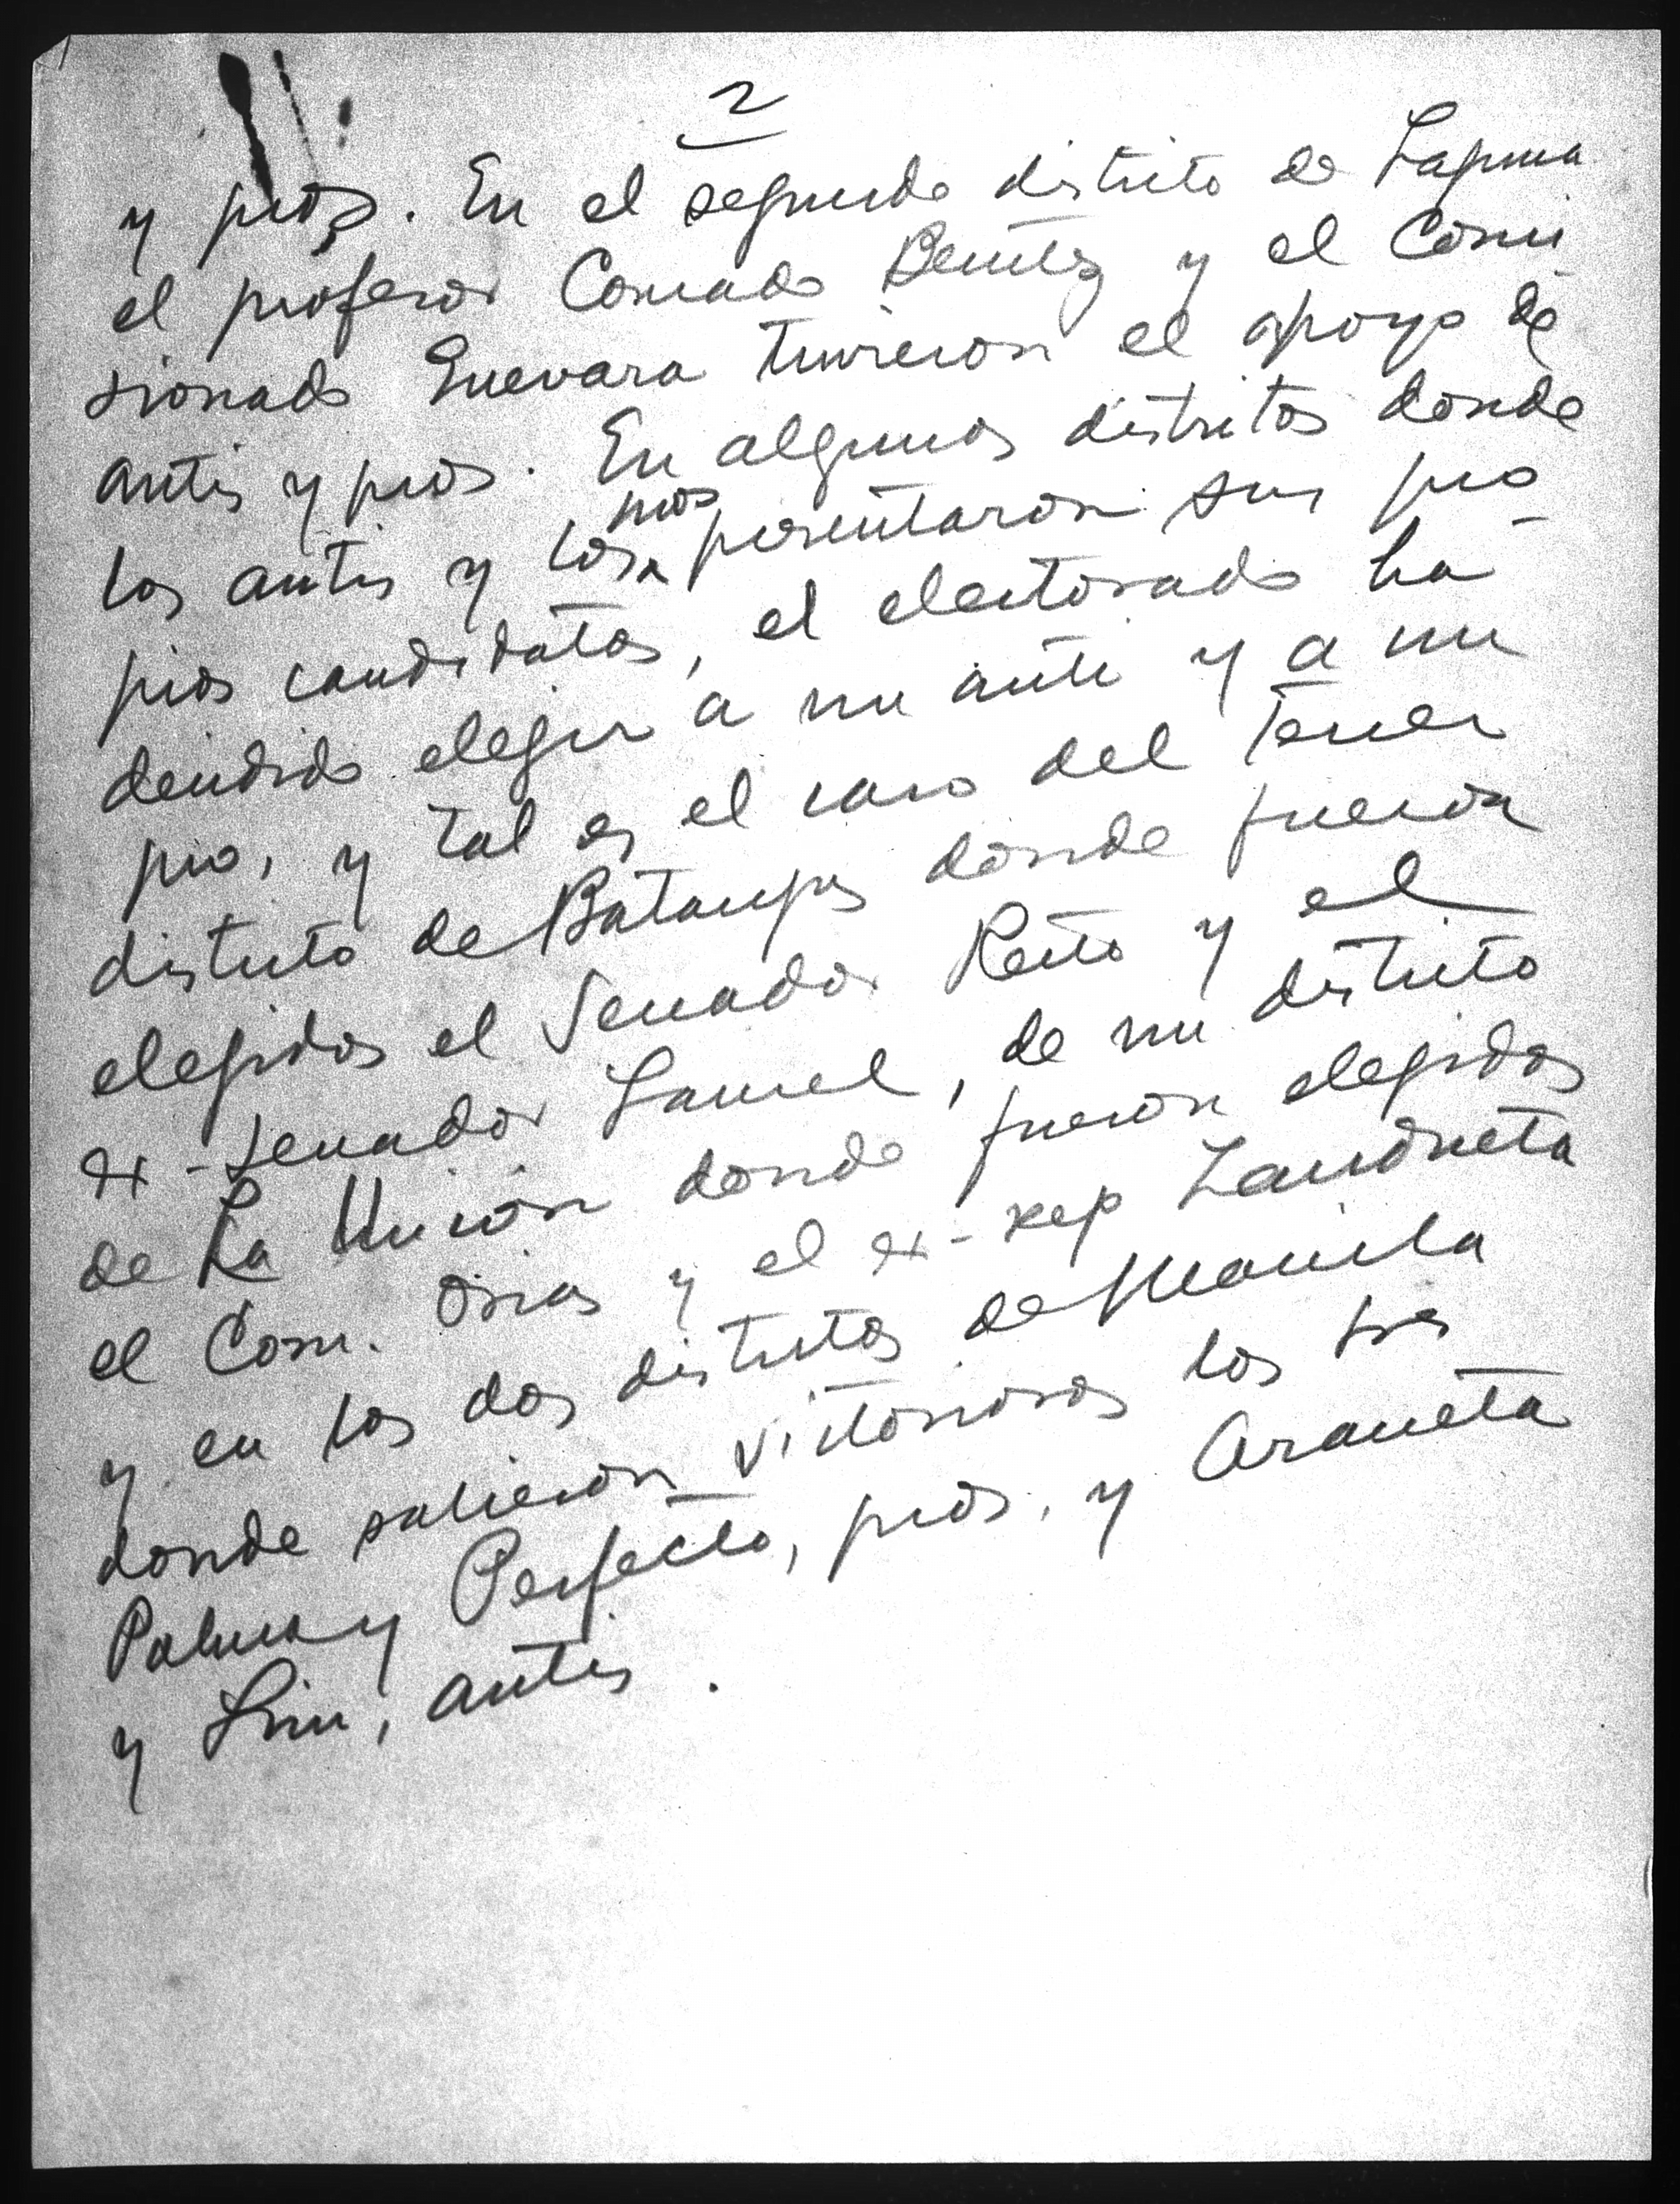 2
y pros. En el segundo distrito de Laguna
el profesor Conrado Benitez y el Comi-
sionado Guevara tuvieron el apoyo de
antis y pros. En algunos distritos donde
los antis y los pros presentaron sus pro-
pios candidatos, el electorado ha
decidido elegir a un anti y a un
pro, y tal es el caso del Tercer
distrito de Batangas donde fueron
elegidos el Senador Recto y el
ex-senador Laurel, de un distrito
de La Union donde fueron elegidos
el Com. Osias y el ex-rep
y en los dos distritos de Manila
donde salieron victoriosos los Sres
Palma y Perfecto, pros, y Araneta
y Lim, antis.